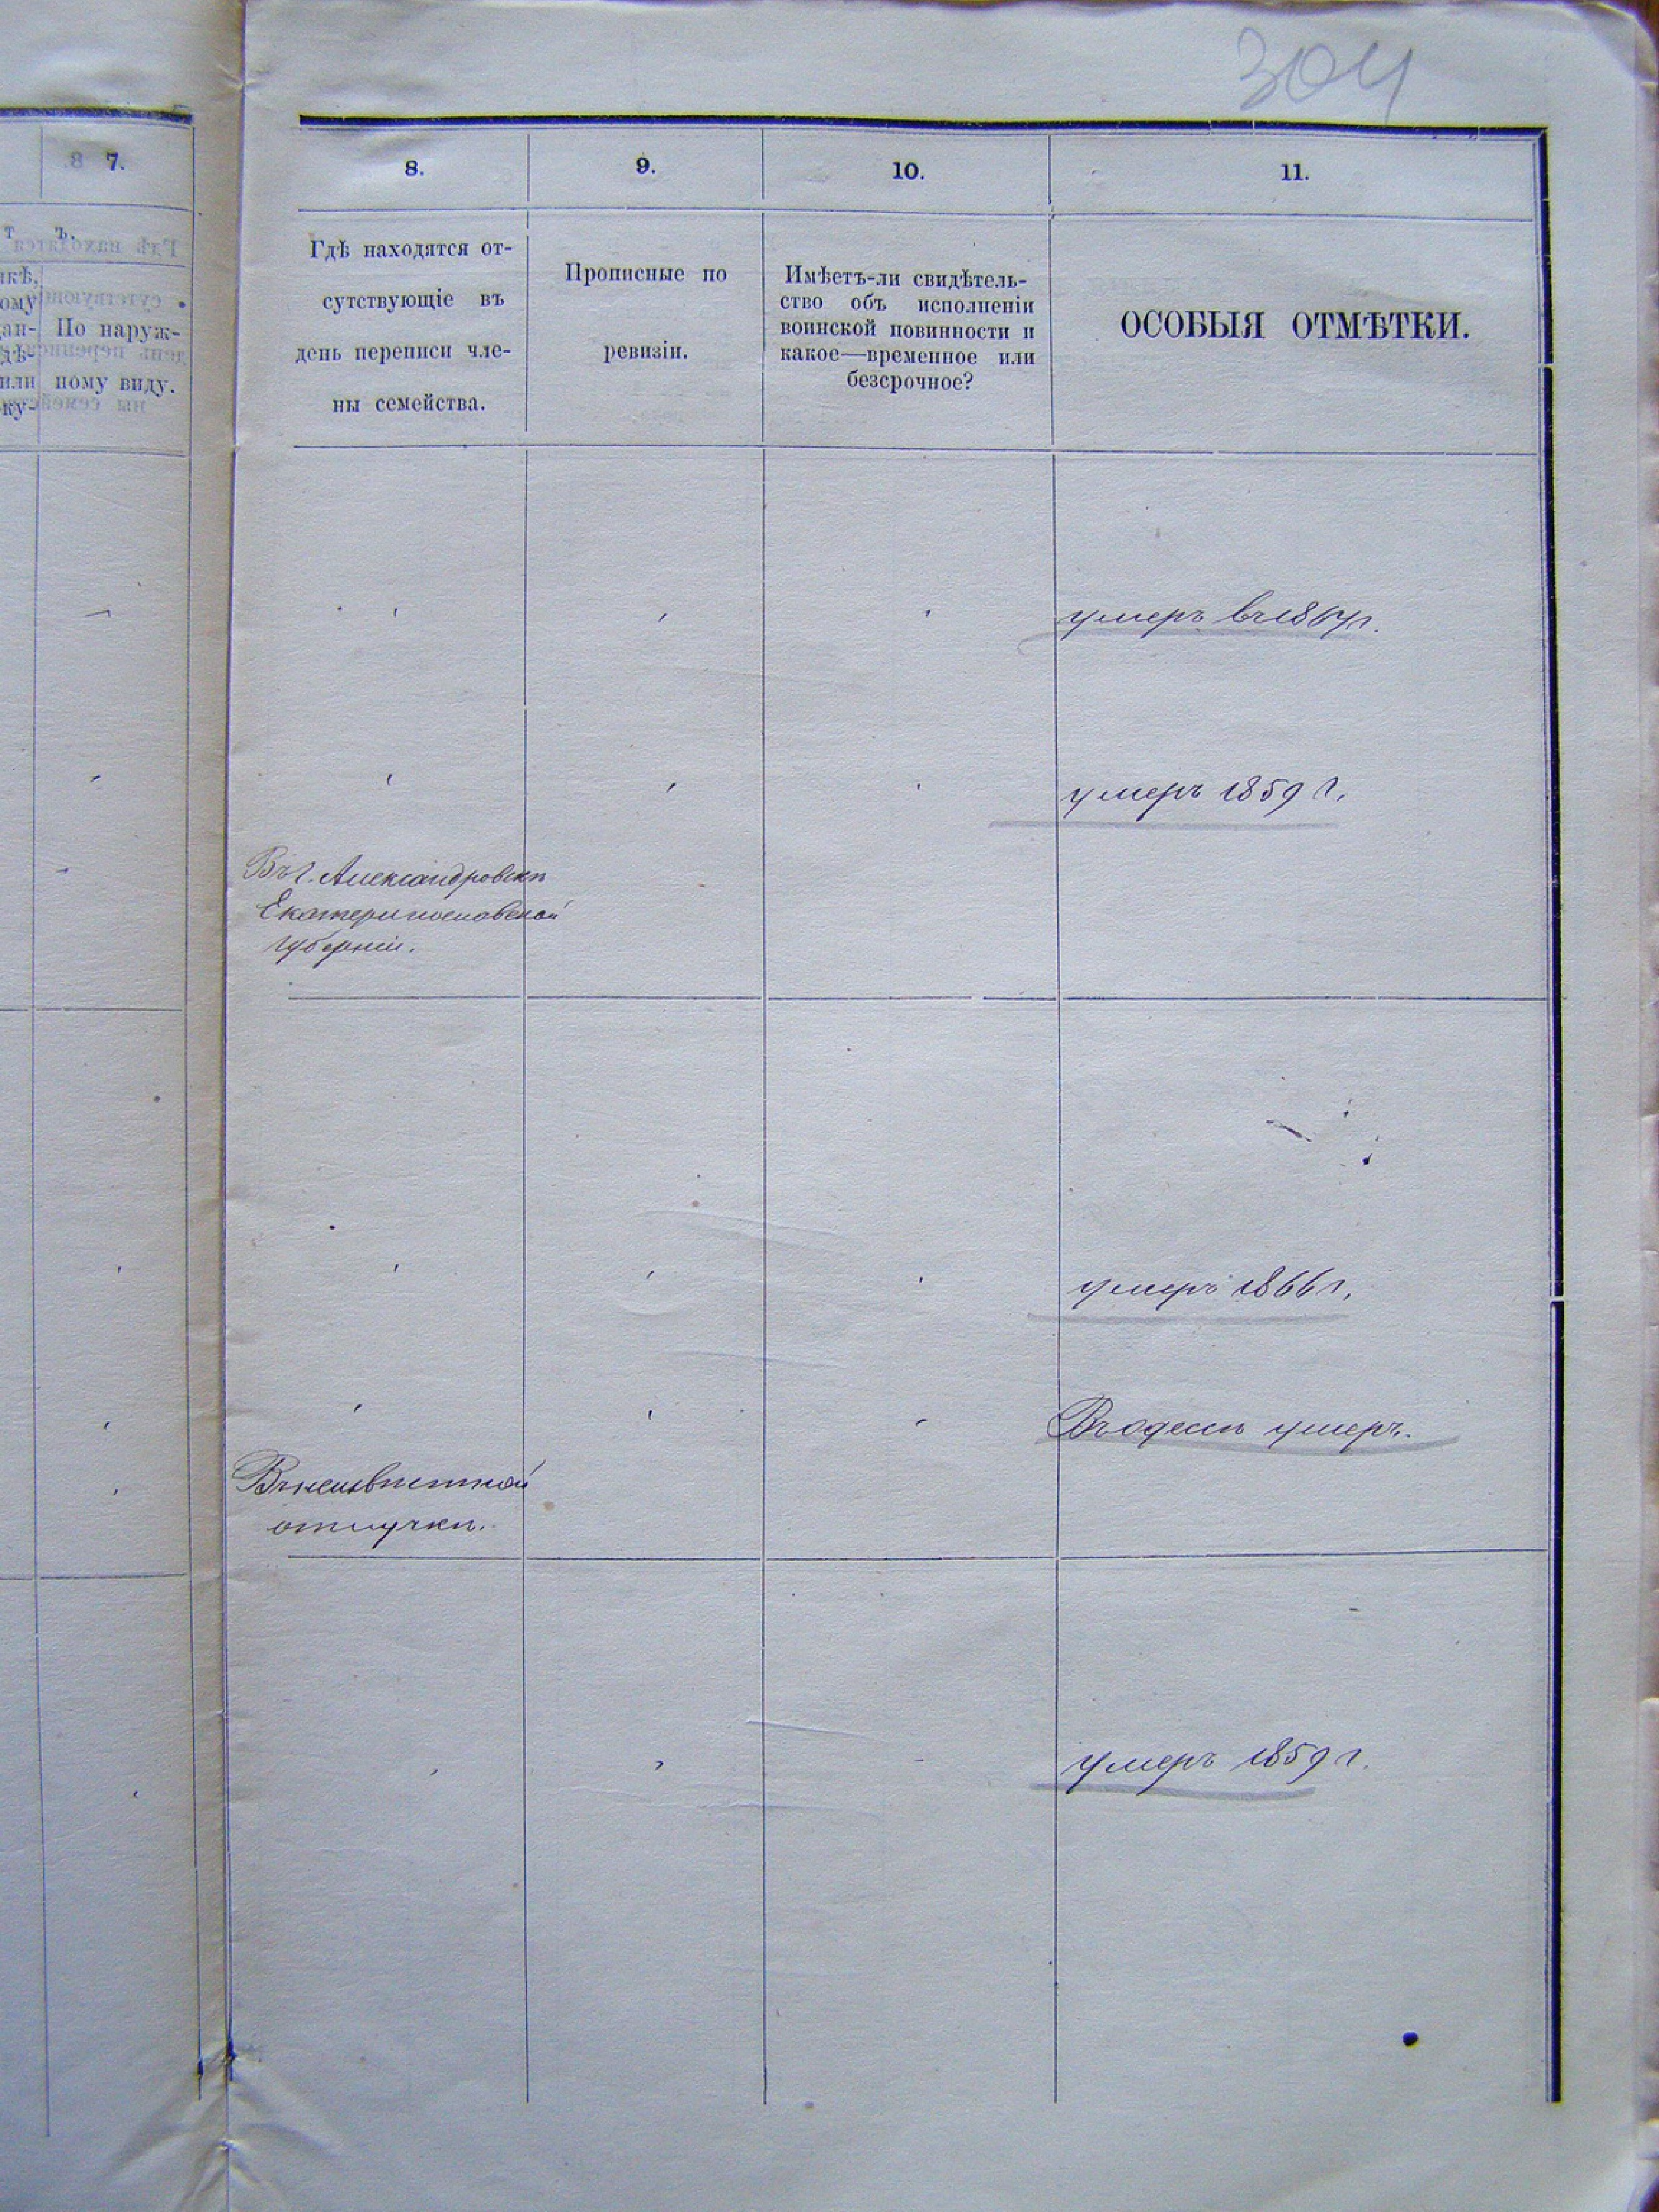 304
7.
8.
9.
10.
11.
По наруж-
ному виду.
Гдѣ находятся от-
сутствующіе въ
день переписи чле-
ны семейства.
Прописные по
ревизіи.
Имѣетъ-ли свидѣтель-
ство объ исполненіи
воинской повинности и
какое—временное или
безсрочное?
ОСОБЫЯ ОТМѢТКИ.
умеръ въ
умеръ 1859 г.
Въ г. Александровскѣ
Екатеринославской
губерніи.
умеръ 1866 г.
Въ одессѣ умеръ.
Въ неизвѣстной
отлучкѣ.
умеръ 1859 г.